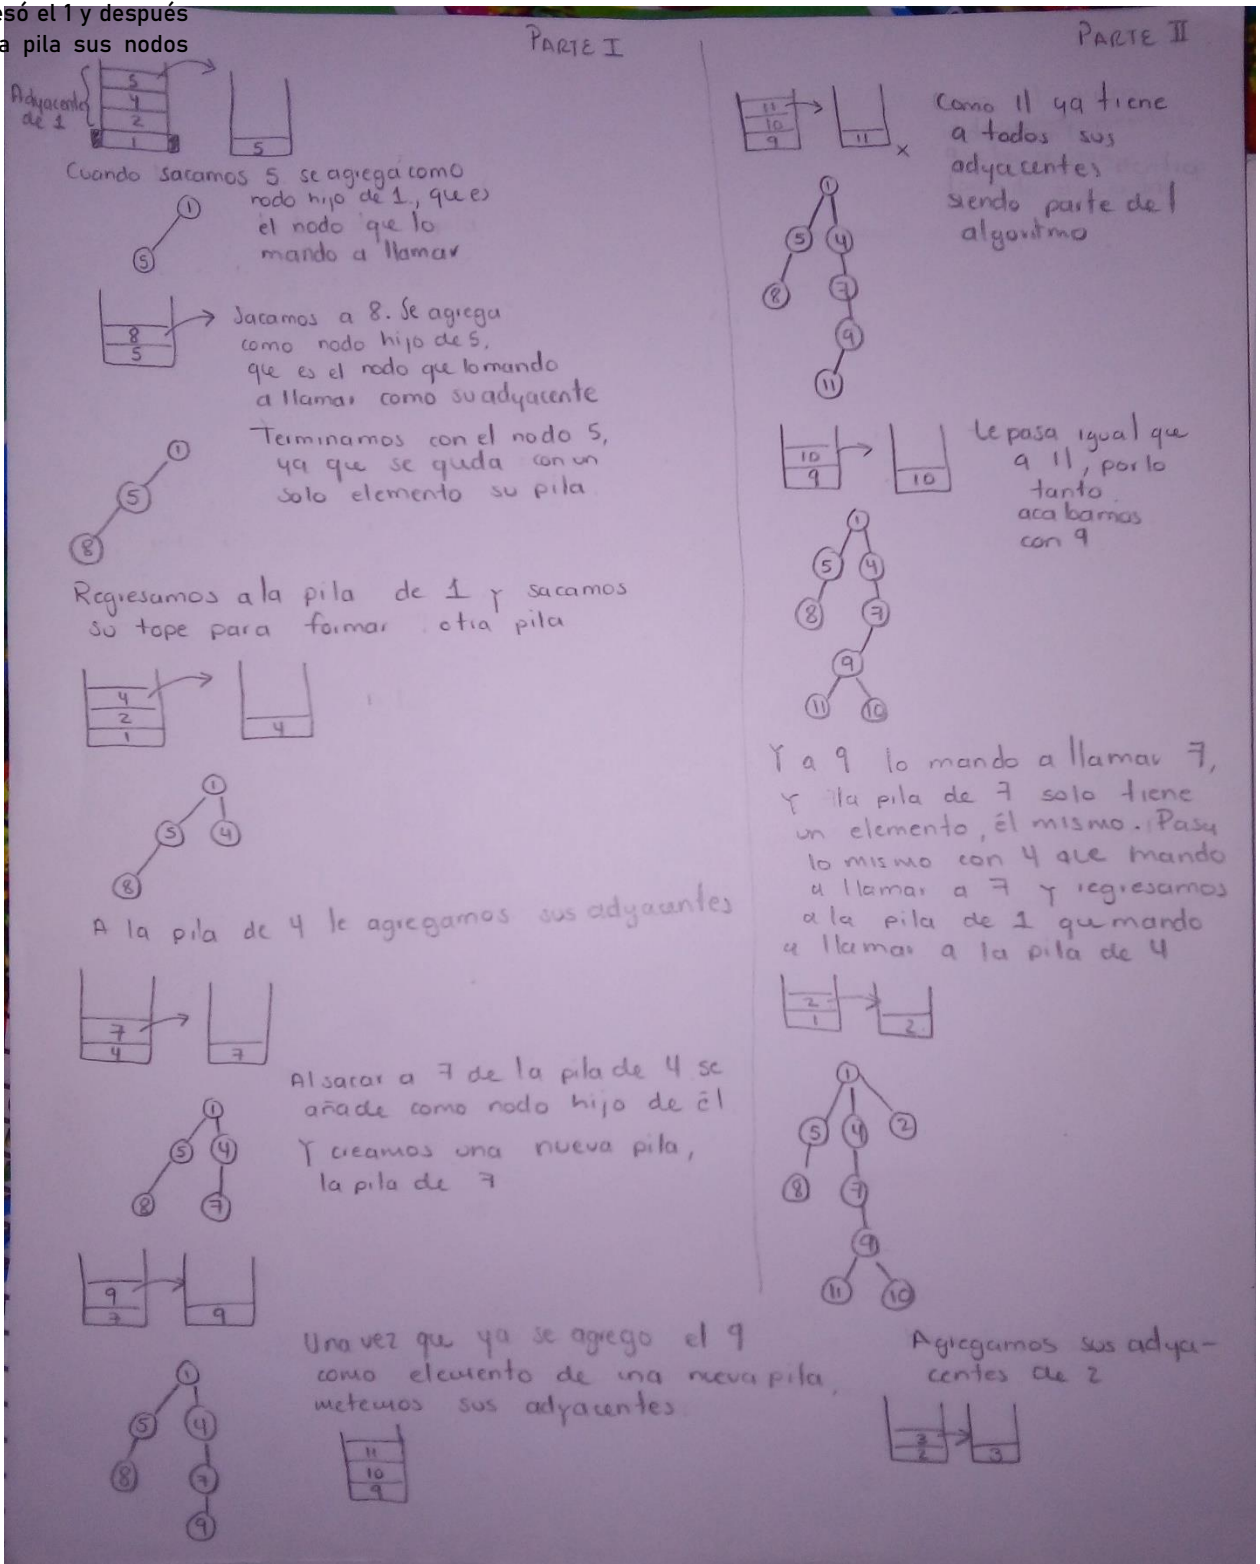 só el 1 y después
a pila sus nodos
PARTE I
Adyacentes
de 1
5
4
2
1
5
Cuando sacamos 5 se agrega como
nodo hijo de 1, que es
el nodo que lo
mando a llamar
1
5
8
5
Sacamos a 8. Se agrega
como nodo hijo de 5,
que es el nodo que lo mando
a llamar como su adyacente
Terminamos con el nodo 5,
ya que se quda con un
solo elemento su pila
1
5
8
Regresamos a la pila de 1 y sacamos
su tope para formar otra pila
4
2
1
4
1
5 4
8
A la pila de 4 le agregamos sus adyacentes
7
4
7
Al sacar a 7 de la pila de 4 se
añade como nodo hijo de él
Y creamos una nueva pila,
la pila de 7
1
5 4
8 7
9
7
9
Una vez que ya se agrego el 9
como elemento de una nueva pila,
metemos sus adyacentes
1
5 4
8 7
9
11
10
9
PARTE II
11
10
9
11
x
Como 11 ya tiene
a todos sus
adyacentes
siendo parte del
algoritmo
1
5 4
8 7
9
11
10
9
10
Le pasa igual que
a 11, por lo
tanto
acabamos
con 9
1
5 4
8 7
9
11 10
Y a 9 lo mando a llamar 7,
Y la pila de 7 solo tiene
un elemento, él mismo. Pasa
lo mismo con 4 que mando
a llamar a 7 y regresamos
a la pila de 1 qu mando
a llamar a la pila de 4
2
1
2
1
5 4 2
8 7
9
11 10
Agregamos sus adya-
centes de 2
3
2
3